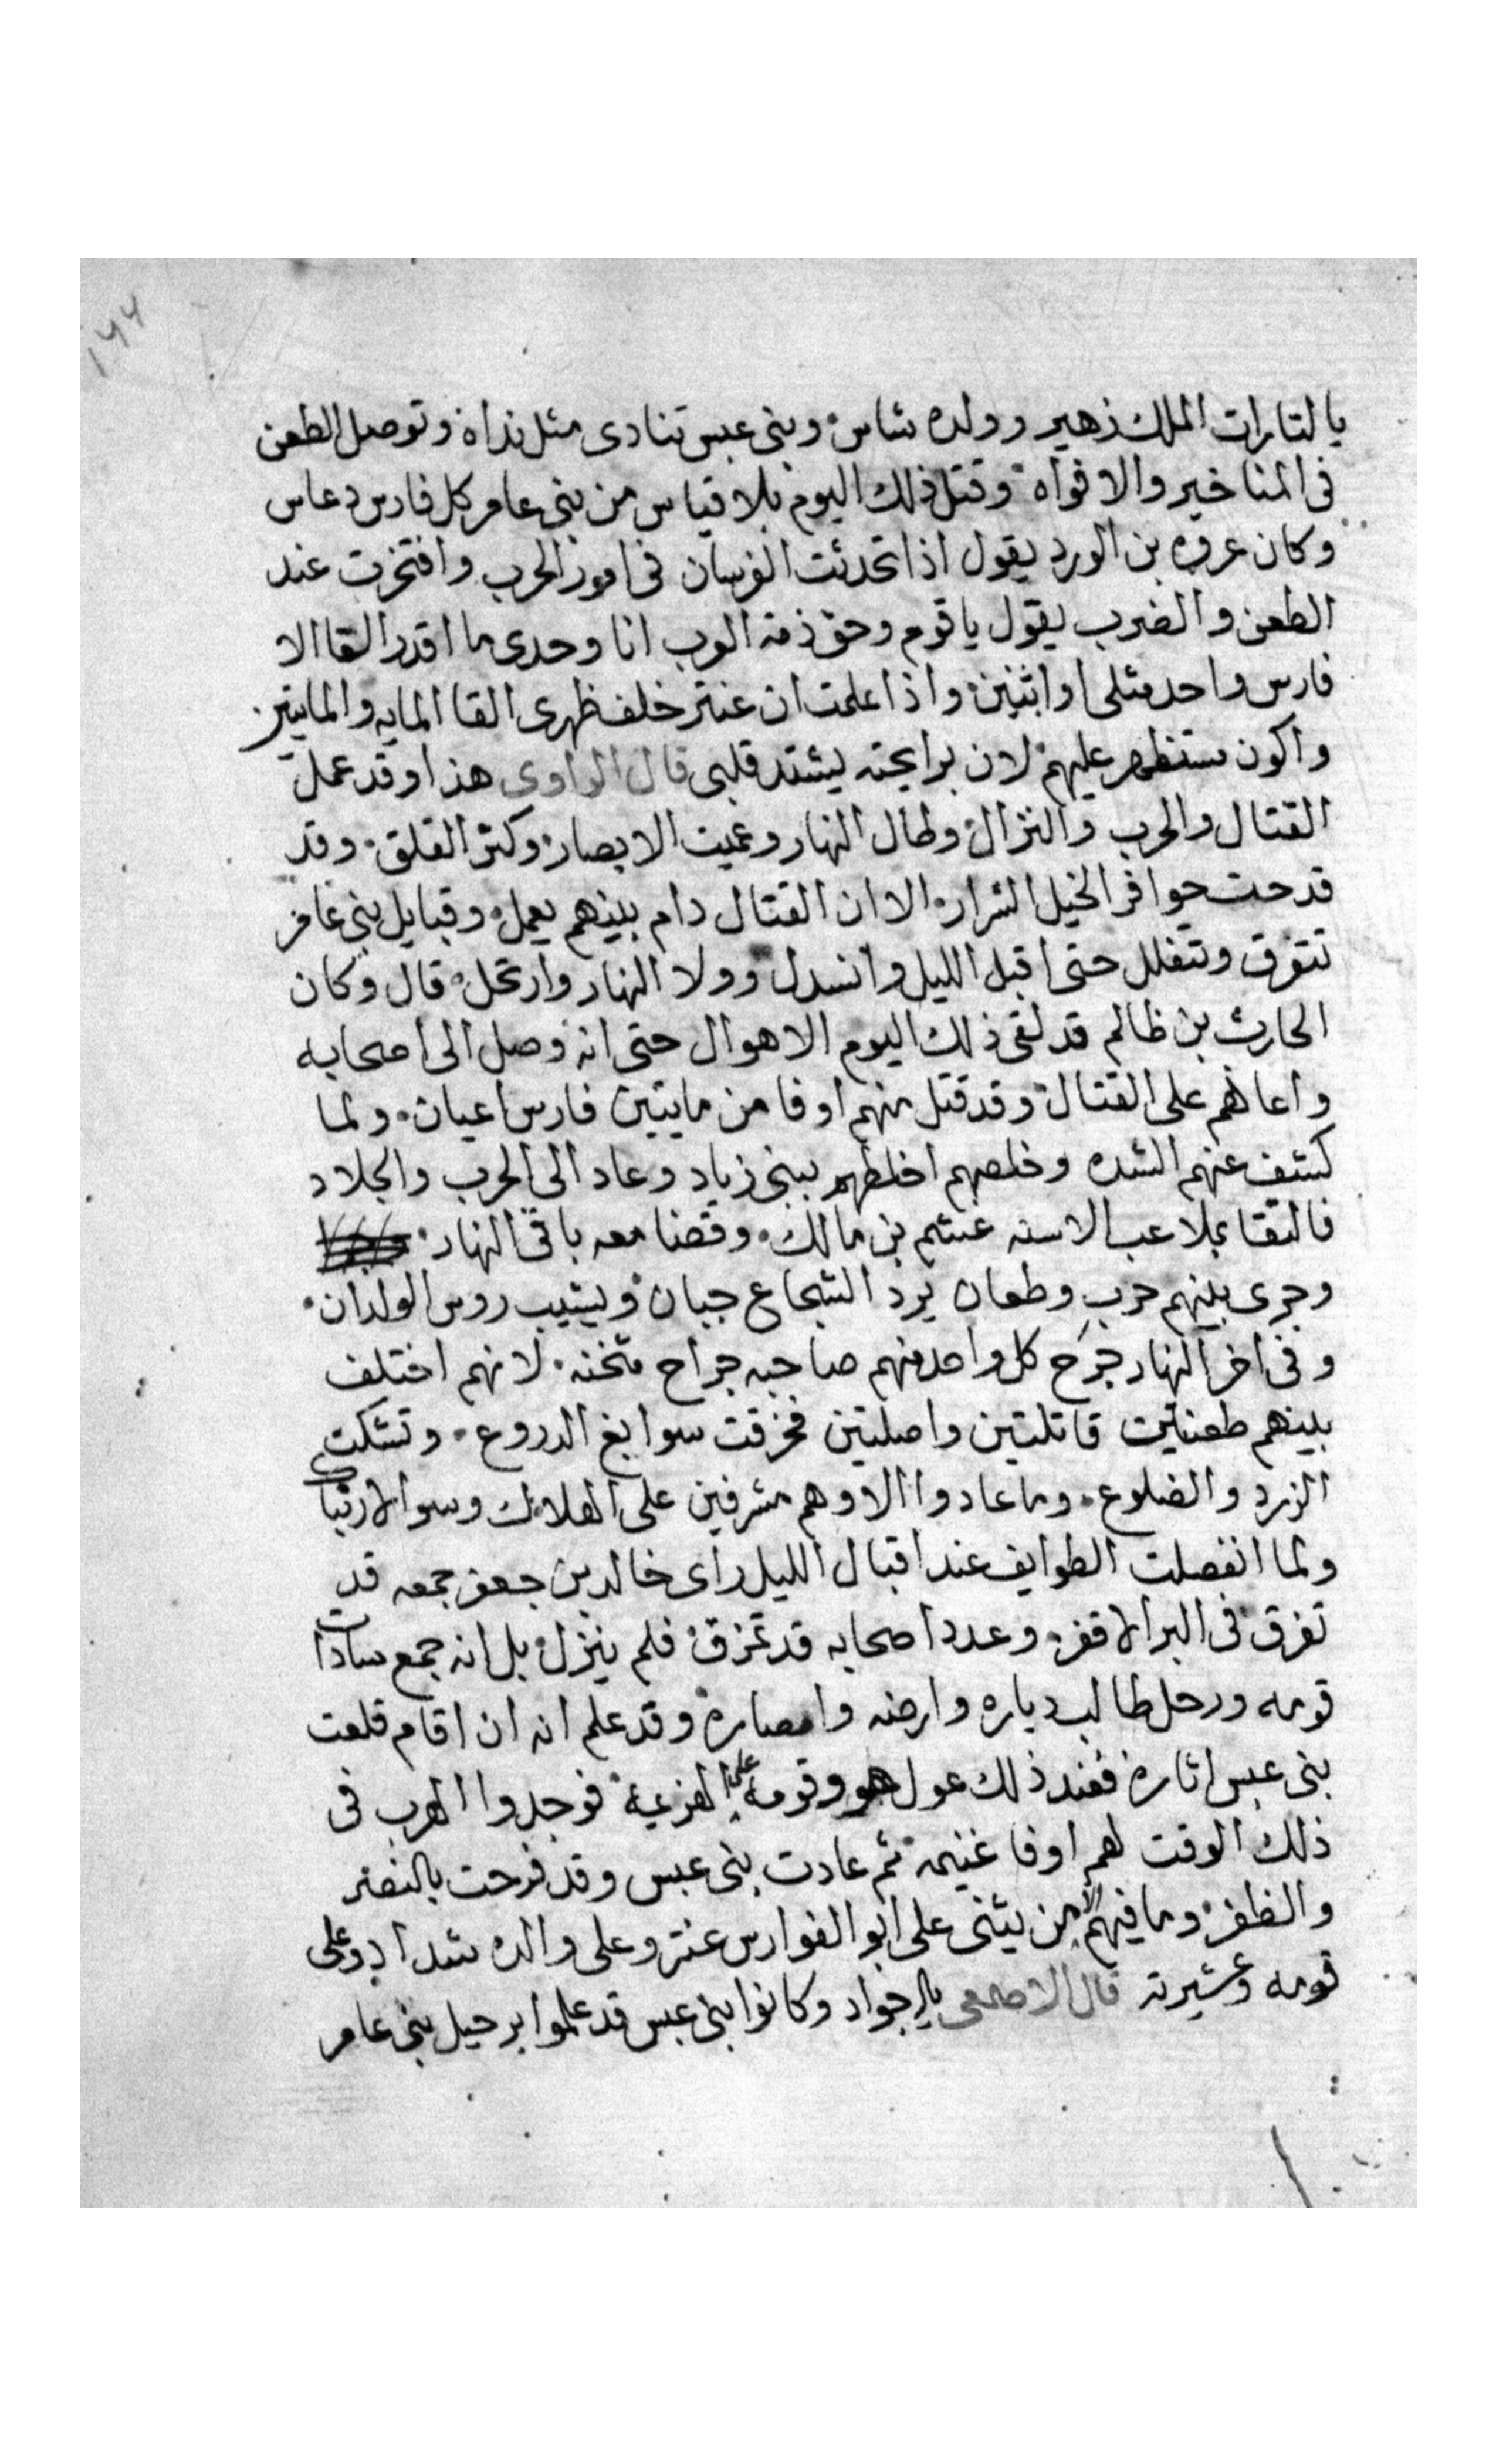 ١٤٤
يا لتارات الملك زهير وولده شاس وبنى عبس تنادى مثل نداه وتوصل الطعن
فى المناخير والافواه وقتل ذلك اليوم بلا قياس من بنى عامر كل فارس دعاس
وكان عروه بن الورد يقول اذا تحدثت الفرسان فى امور الحرب وافتخرت عند
الطعن والضرب يقول يا قوم وحق ذمة العرب انا وحدى ما اقدر القا الا
فارس واحد مثلى او اثنين واذا علمت ان عنتر خلف ظهرى القا المايه والمايتين
واكون مستظهر عليهم لان برايحته يشتد قلبى قال الراوى هذا وقد عمل
القتال والحرب والنزال وطال النهار وعميت الابصار وكثر القلق وقد
قدحت حوافر الخيل الشرار الا ان القتال دام بينهم يعمل وقبايل بنى عامر
تتفرق وتتفلل حتى اقبل الليل وانسدل وولا النهار وارتحل قال وكان
الحارث بن ظالم قد لقى ذلك اليوم الاهوال حتى انه وصل الى اصحابه
واعانهم على القتال وقد قتل منهم اوفا من مايتين فارس اعيان ولما
كشف عنهم الشده وخلصهم اخلطهم ببنى زياد وعاد الى الحرب والجلاد
فالتقا بملاعب الاسنه غشم بن مالك وقضا معه باقى النهار
وجرى بينهم حرب وطعان يرد الشجاع جبان ويشيب روس الولدان
وفى اخر النهار جرح كل واحد منهم صاحبه جراح متخنه لانهم اختلف
بينهم طعنتين قاتلتين واصلتين فخرقت سوابغ الدروع وتشكت
الزرد والضلوع وما عادوا الا وهم مشرفين على الهلاك وسو الارتباك
ولما انفصلت الطوايف عند اقبال الليل راى خالد بن جعفر جمعه قد
تفرق فى البر الاقفر وعدد اصحابه قد تمزق فلم ينزل بل انه جمع سادات
قومه ورحل طالب دياره وارضه وامصاره وقد علم انه ان اقام قلعت
بنى عبس اثاره فعند ذلك عول هو وقومه على الهزيمة فوجدوا الهرب فى
ذلك الوقت لهم اوفا غنيمه ثم عادت بنى عبس وقد فرحت بالنصر
والظفر وما فيهم الا من يثنى على ابو الفوارس عنتر وعلى والده شداد وعلى
قومه وعشيرته قال الاصمعى يا اجواد وكانوا بنى عبس قد علموا برحيل بنى عامر